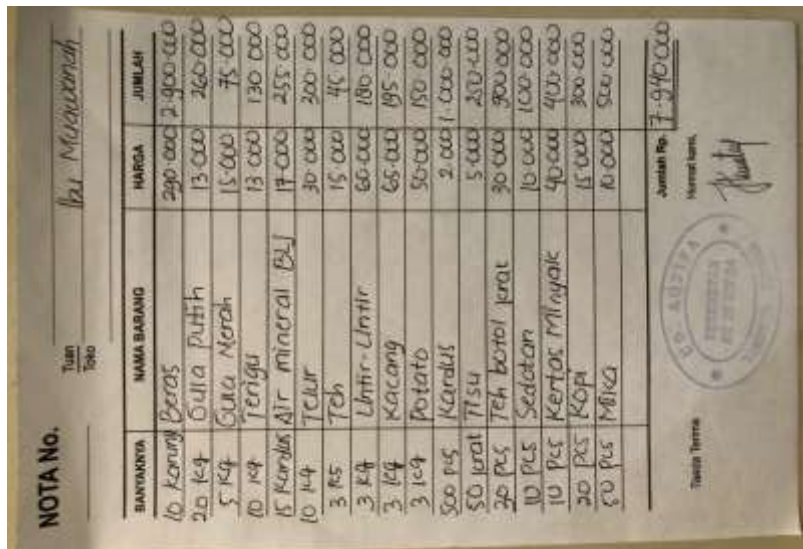 NOTA No.
Tuan
Toko
Ibu Muawanah
BANYAKNYA NAMA BARANG HARGA JUMLAH
10 Karung Beras 290.000 2.900.000
20 Kg Gula Putih 13.000 260.000
5 Kg Gula Merah 15.000 75.000
10 Kg Terigu 13.000 130.000
15 Kardus Air mineral BLJ 17.000 255.000
10 Kg Telur 30.000 300.000
3 Ks Teh 15.000 45.000
3 Kg Untir-Untir 60.000 180.000
3 Kg Kacang 65.000 195.000
3 Kg Potato 50.000 150.000
500 pcs Kardus 2.000 1.000.000
50 krat Tisu 5.000 250.000
30 pcs Teh botol krat 30.000 900.000
10 pcs Sedotan 10.000 100.000
10 pcs Kertas Minyak 40.000 400.000
20 pcs Kopi 15.000 300.000
50 pcs Mika 10.000 500.000
Jumlah Rp. 7.940.000
Tanda Terima Hormat kami,